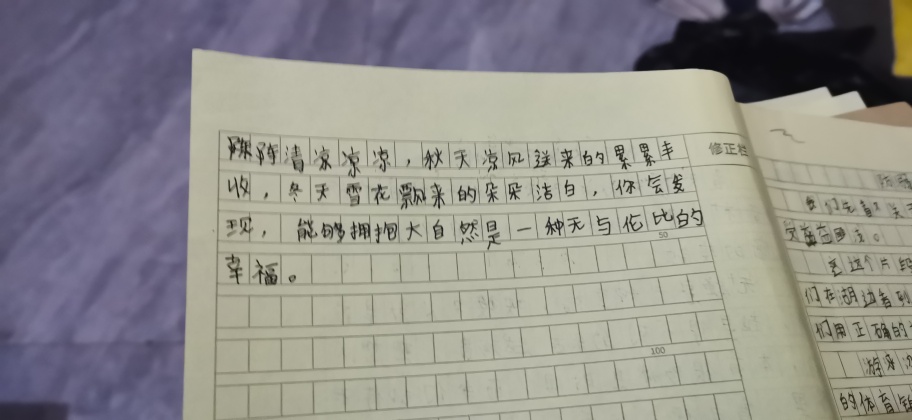 阵阵清凉凉凉，秋天凉风送来的累累丰
收，冬天雪花飘来的朵朵洁白，你会发
现，能够拥抱大自然是一种无与伦比的
幸福。
50
100
修正栏
这个片段
们在湖边看到
们用正确的
的体育锻